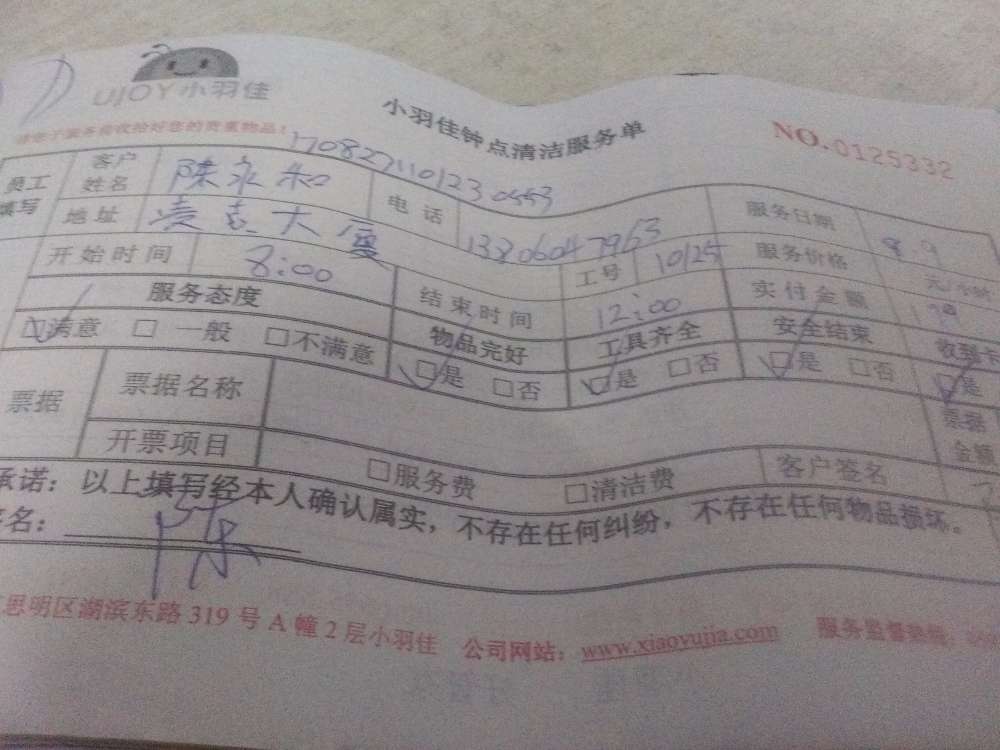 UJOY小羽佳
小羽佳钟点清洁服务单
NO.0125332
170827110123 0553
员工填写 客户姓名 陈永和 电话 13806047963 服务日期 8.9
地址 大厦 工号 10125 服务价格
开始时间 8:00 结束时间 12:00 实付金额
服务态度 物品完好 工具齐全 安全结束 收到卡
☑满意 □一般 □不满意 ☑是 □否 ☑是 □否 ☑是 □否 ☑是
票据 票据名称 票据金额
开票项目 □服务费 □清洁费 客户签名
承诺：以上填写经本人确认属实，不存在任何纠纷，不存在任何物品损坏。
签名： 陈
思明区湖滨东路 319 号 A 幢 2 层小羽佳 公司网站：www.xiaoyujia.com 服务监督热线：